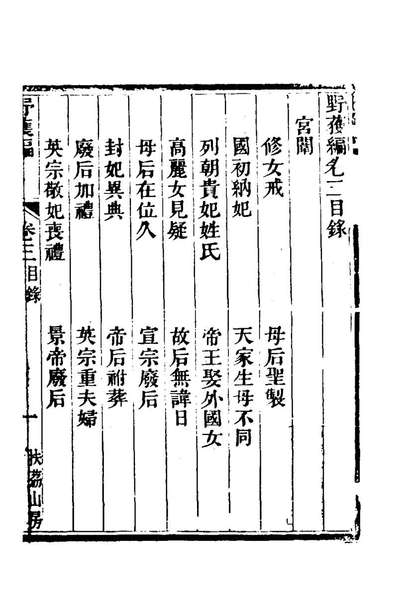 野獲編卷三目錄
宮闈
修女戒 母后聖製
國初納妃 天家生母不同
列朝貴妃姓氏 帝王娶外國女
高麗女見疑 故后無諱日
母后在位久 宣宗廢后
封妃異典 帝后祔葬
廢后加禮 英宗重夫婦
英宗敬妃喪禮 景帝廢后
野獲編 卷三目錄 一 扶荔山房